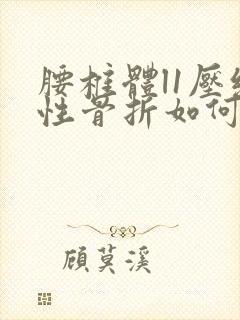 腰柱體11壓
性骨折如何
顧莫溪